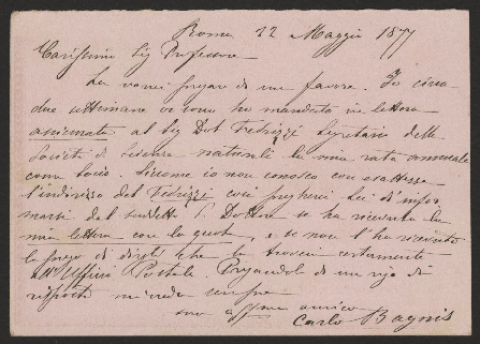 Roma 22 Maggio 1877
Carissimo Sig Professore
La vorrei pregare di un favore. Io circa
due settimane or sono ho mandato in lettera
assicurata al Sig Dot Fedrizzi Segretario della
Società di Scienze naturali la mia rata annuale
come Socio. Siccome io non conosco con esattezza
l'indirizzo del Fedrizzi così pregherei Lei d'infor
marsi dal suddetto S. Dottore se ha ricevuto la
mia lettera con la quota, e se non l'ha ricevuta
la prego di dirgli che la troverà certamente
all' Uffizio Postale. Pregandol di un rigo di
risposta mi creda sempre
suo affmo amico
Carlo Bagnis